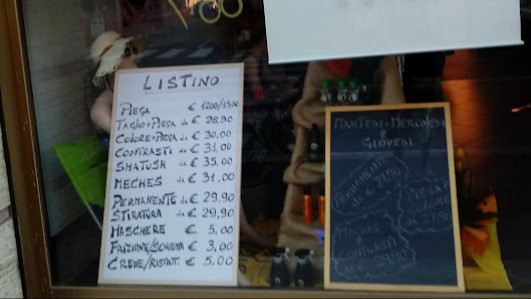 LISTINO
PIEGA € 12,00/15,00
TAGLIO+PIEGA da € 28,90
COLORE+PIEGA da € 30,00
CONTRASTI da € 31,00
SHATUSH da € 35,00
MECHES da € 31,00
PERMANENTE da € 29,90
STIRATURA da € 29,90
MASCHERE € 5,00
FRIZIONE/SCHIUMA € 3,00
CREME/RISTRUT. € 5,00
MARTEDI-MERCOLEDI
E
GIOVEDI
PERMANENTE
da
MECHES
E
CONTRASTI